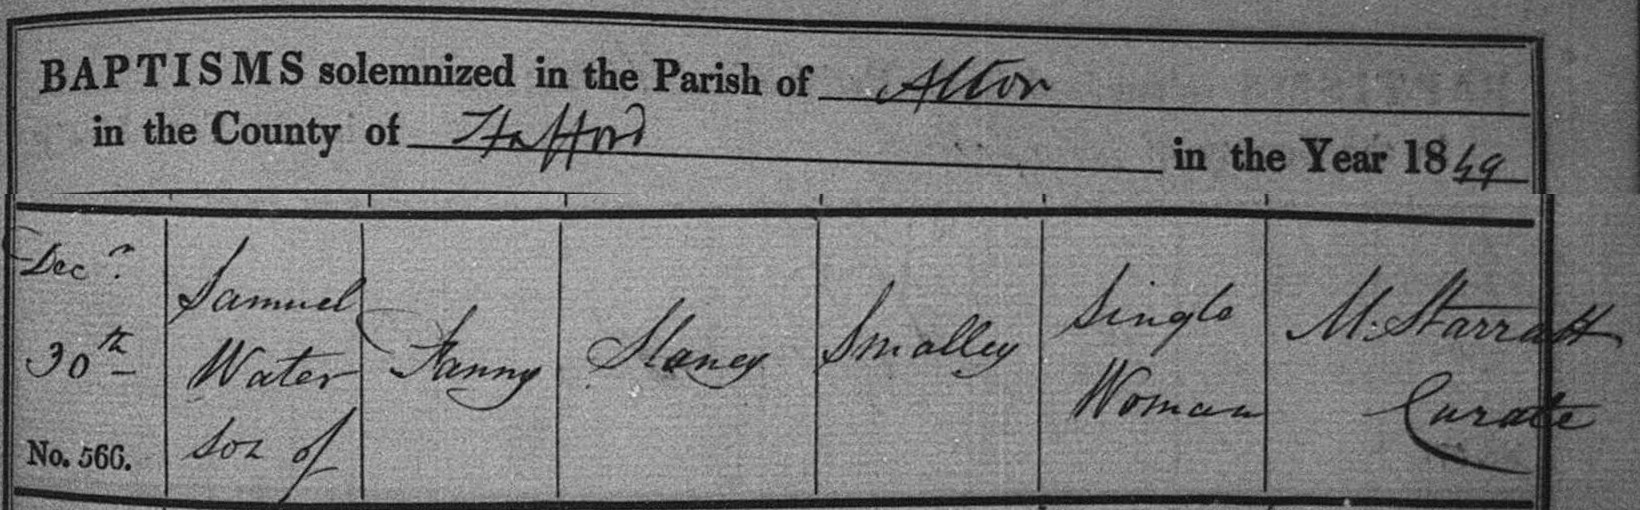 BAPTISMS solemnized in the Parish of Alton
in the County of Stafford in the Year 1849
Decr
30th
No. 566.
Samuel
Water
son of
Fanny
Slaney
Smalley
Single
Woman
M. Starratt
Curate